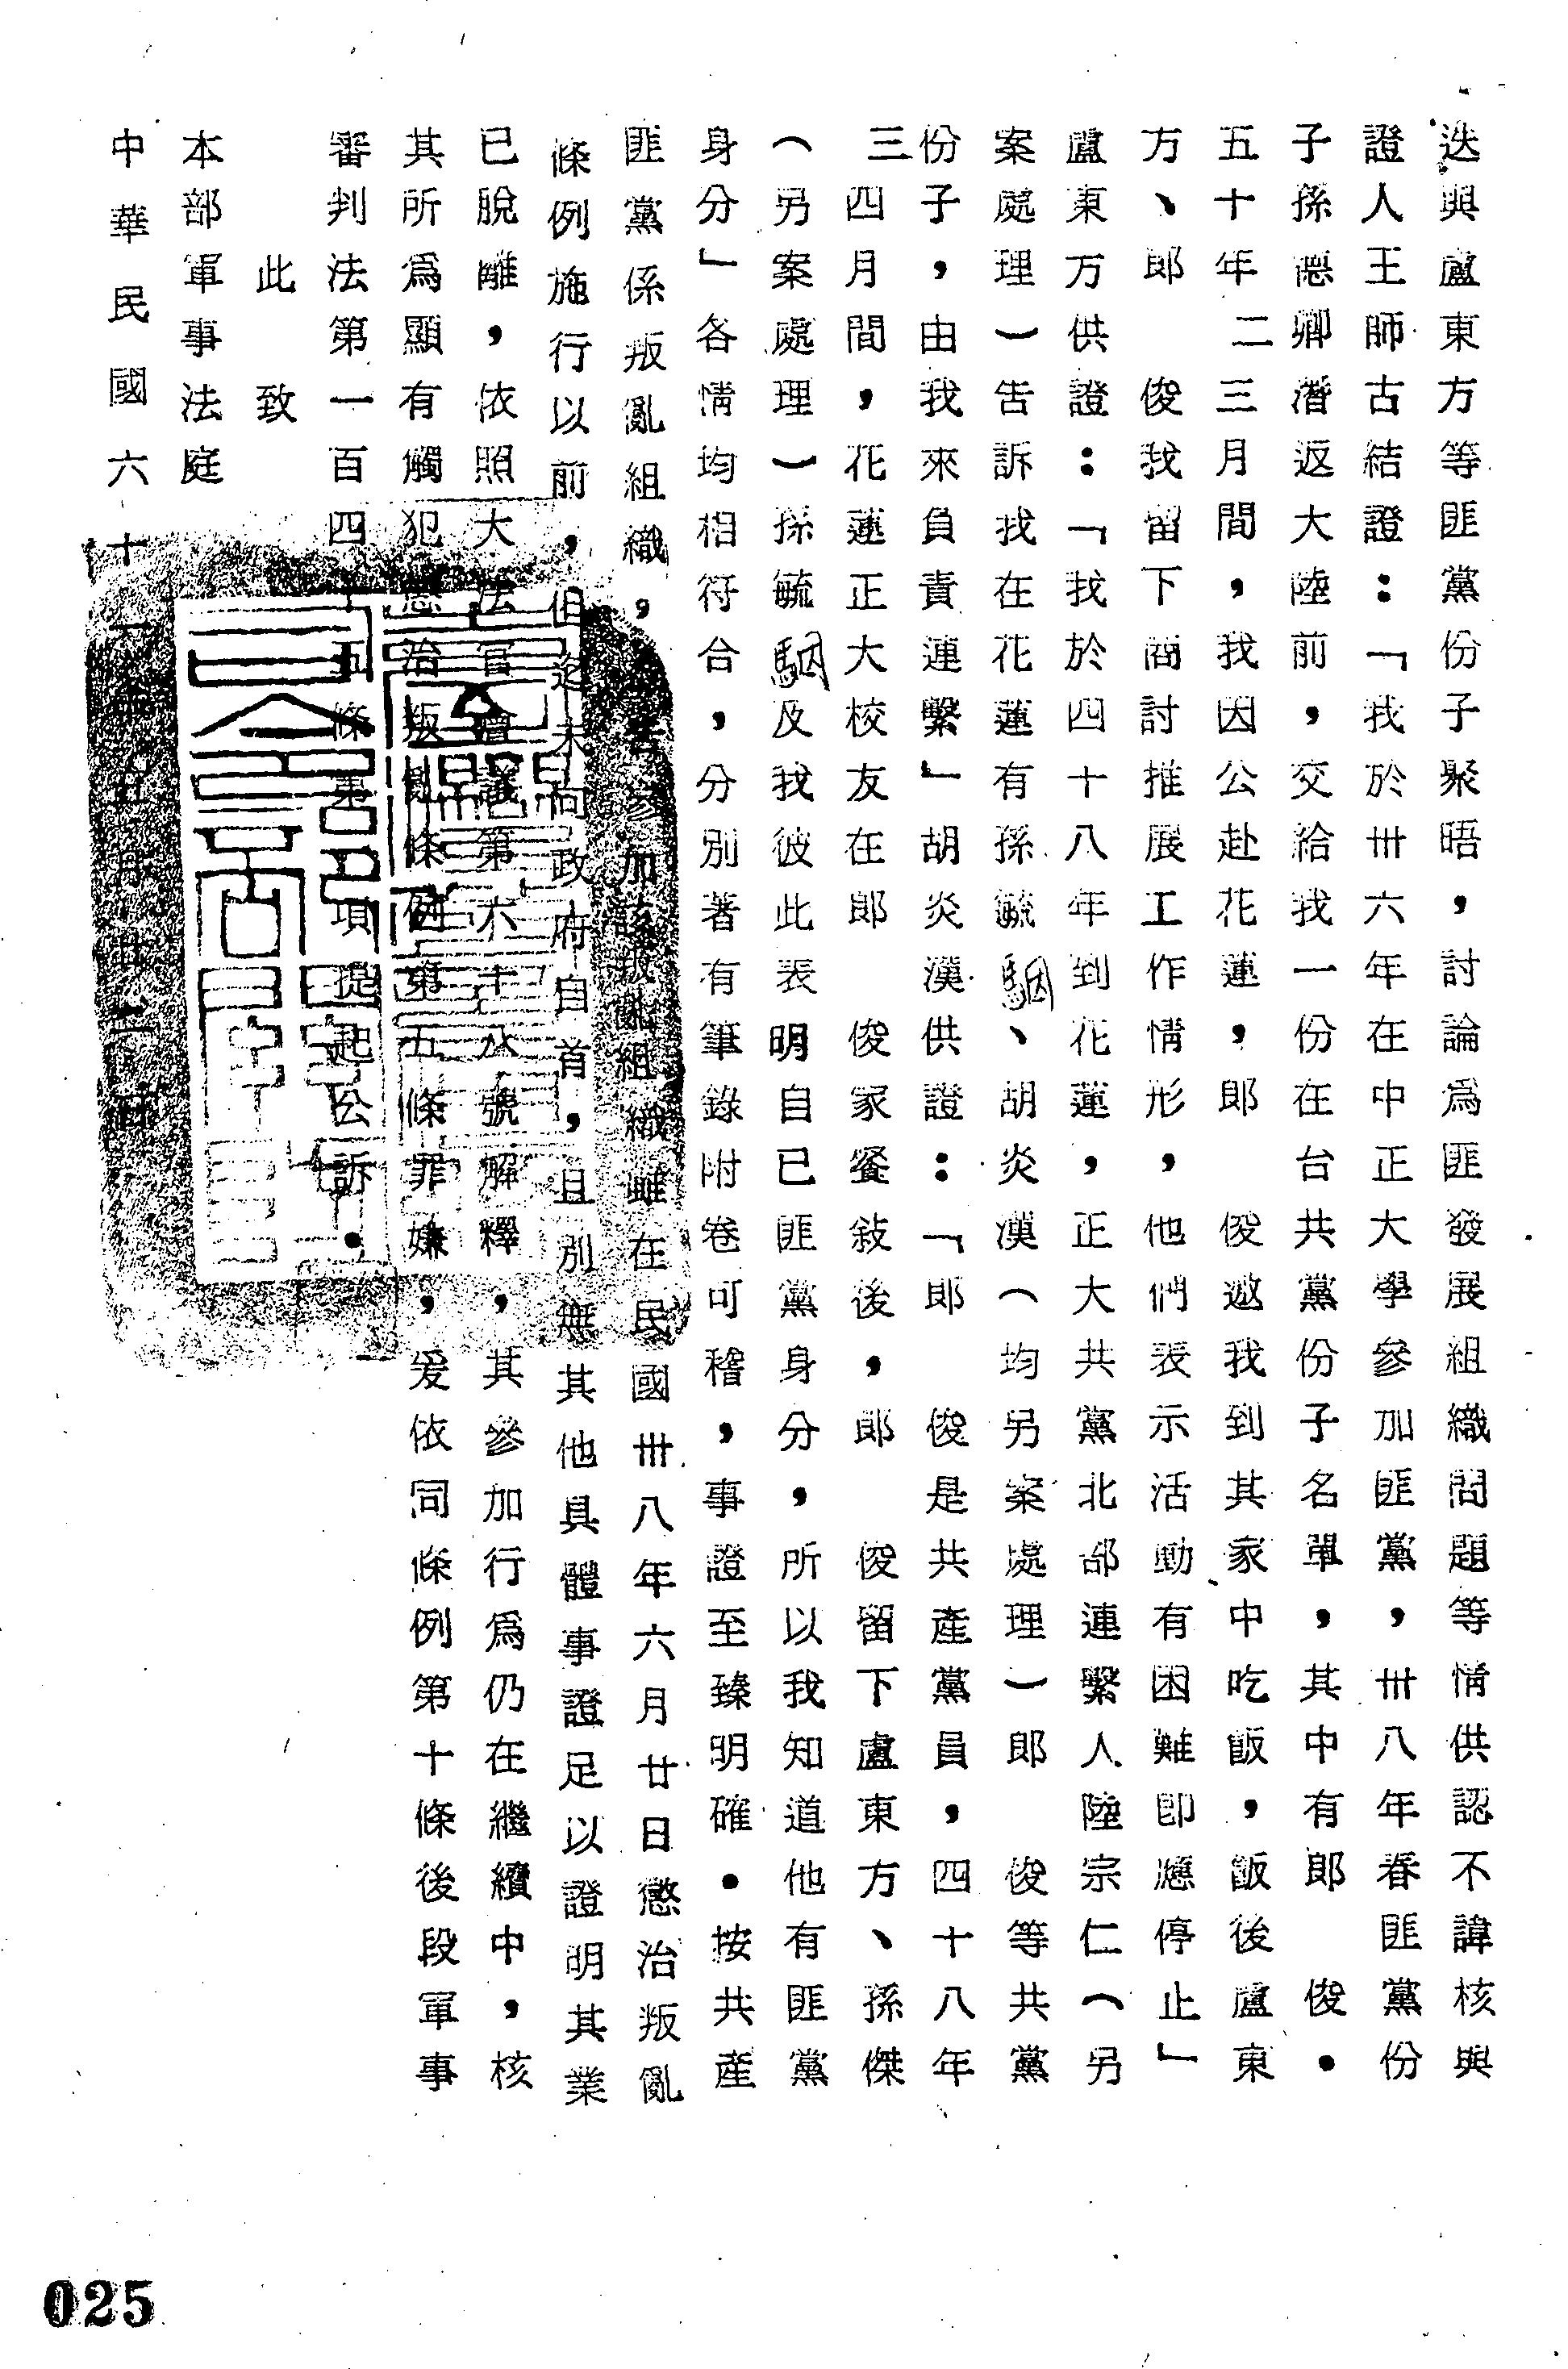 迭與盧東方等匪黨份子聚晤，討論爲匪發展組織問題等情供認不諱核與
證人王師古結證：「我於卅六年在中正大學參加匪黨，卅八年春匪黨份
子孫憲卿潛返大陸前，交給我一份在台共黨份子名單，其中有郎　俊。
五十年　二三月間，我因公赴花蓮，郎　俊邀我到其家中吃飯，飯後盧東
方、郎　俊我留下商討推展工作情形，他們表示活動有困難即應停止」
盧東方供證：「我於四十八年到花蓮，正大共黨北部連繫人陸宗仁（另
案處理）告訴我在花蓮有孫毓駰、胡炎漢（均另案處理）郎　俊等共黨
份子，由我來負責連繫」胡炎漢供證：「郎　俊是共產黨員，四十八年
三四月間，花蓮正大校友在郎　俊家餐敍後，郎　俊留下盧東方、孫傑
（另案處理）孫毓駰及我彼此表明自已匪黨身分，所以我知道他有匪黨
身分」各情均相符合，分別著有筆錄附卷可稽，事證至臻明確。按共產
匪黨係叛亂組織，參加該叛亂組織雖在民國卅八年六月廿日懲治叛亂
條例施行以前，但迄未向政府自首，且別無其他具體事證足以證明其業
已脫離，依照大法官會議第六十八號解釋，其參加行爲仍在繼續中，核
其所爲顯有觸犯懲治叛亂條例第五條罪嫌，爰依同條例第十條後段軍事
審判法第一百四十五條第一項提起公訴。
此　致
本部軍事法庭
中華民國六十一年五月廿二日
025